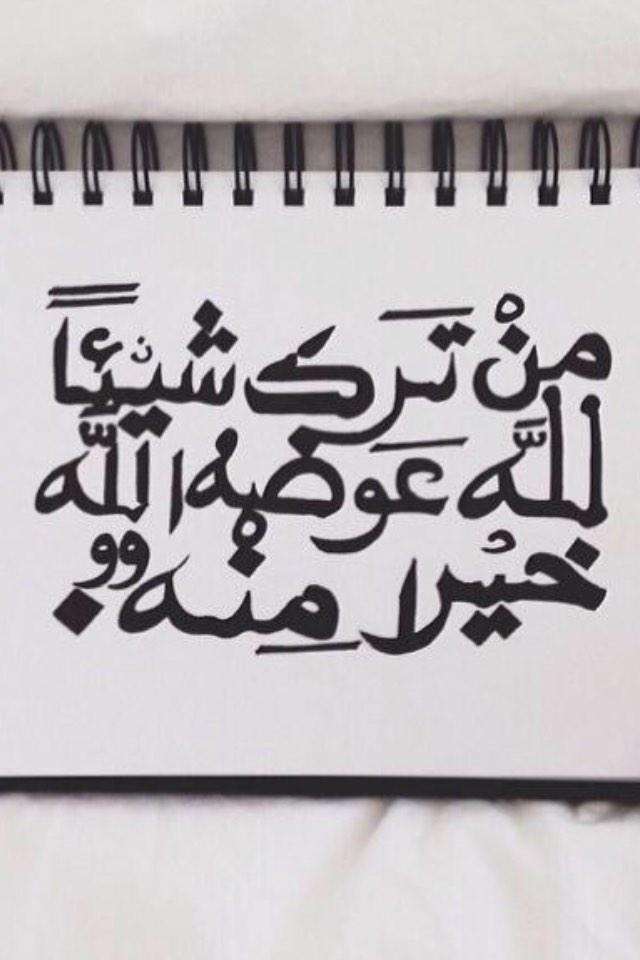 منْ تَرك شيْئاً
للَّه عَوضه الله
خيْرا مِنه